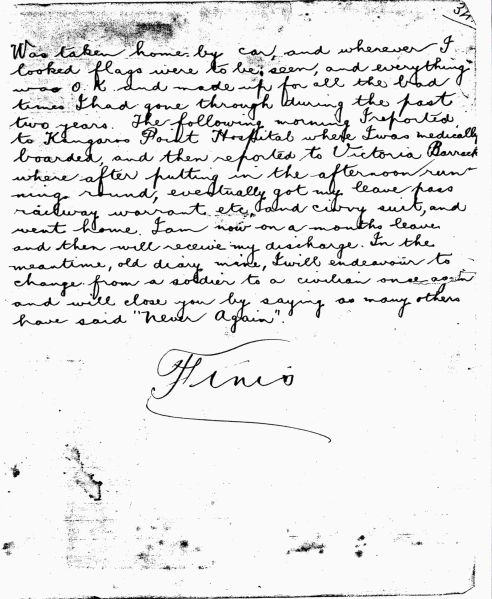 Was taken home by car, and wherever I
looked flags were to be seen, and everything
was O.K and made up for all the bad
times I had gone through during the past
two years. The following morning I reported
to Kangaroo Point Hospital where I was medically
boarded, and then reported to Victoria Barracks
where after putting in the afternoon run-
ning round, eventually got my leave pass
railway warrant etc, and civvy suit, and
went home. I am now on a months leave
and then will receive my discharge. In the
meantime, old diary mine, I will endeavour to
change from a soldier to a civilian once again
and will close you by saying as many others
have said "Never Again".
Finis